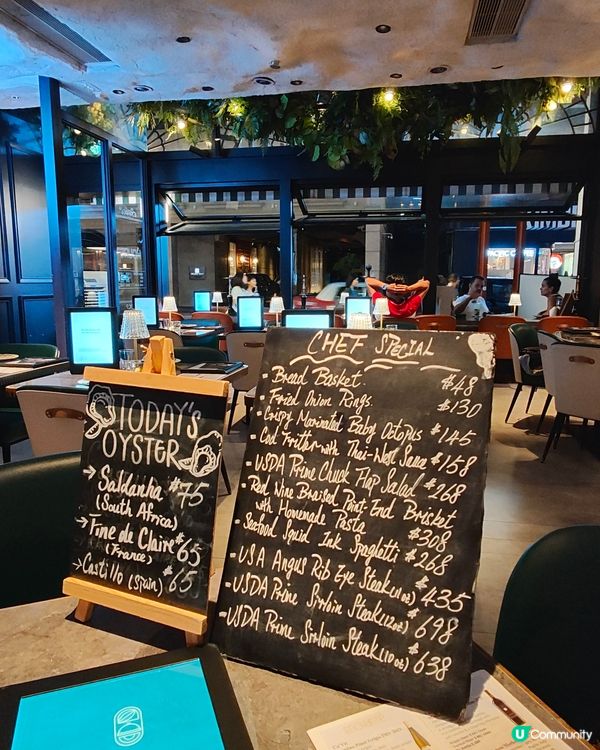 TODAY'S
OYSTER
→ Saldanha $75
(South Africa)
→ Fine de Claire $65
(France)
→ Castillo (Spain) $65
CHEF SPECIAL
- Bread Basket $48
- Fried Onion Rings $130
- Crispy Marinated Baby Octopus $145
- Cod Fritter with Thai-West Sauce $158
- USDA Prime Chuck Flap Salad $268
- Red Wine Braised Point End Brisket
with Homemade Pasta $308
- Seafood Squid Ink Spaghetti $268
- USA Angus Rib Eye Steak (10oz) $435
- USDA Prime Sirloin Steak (12oz) $698
- USDA Prime Sirloin Steak (10oz) $638
PACIFIC COFFEE
U Community